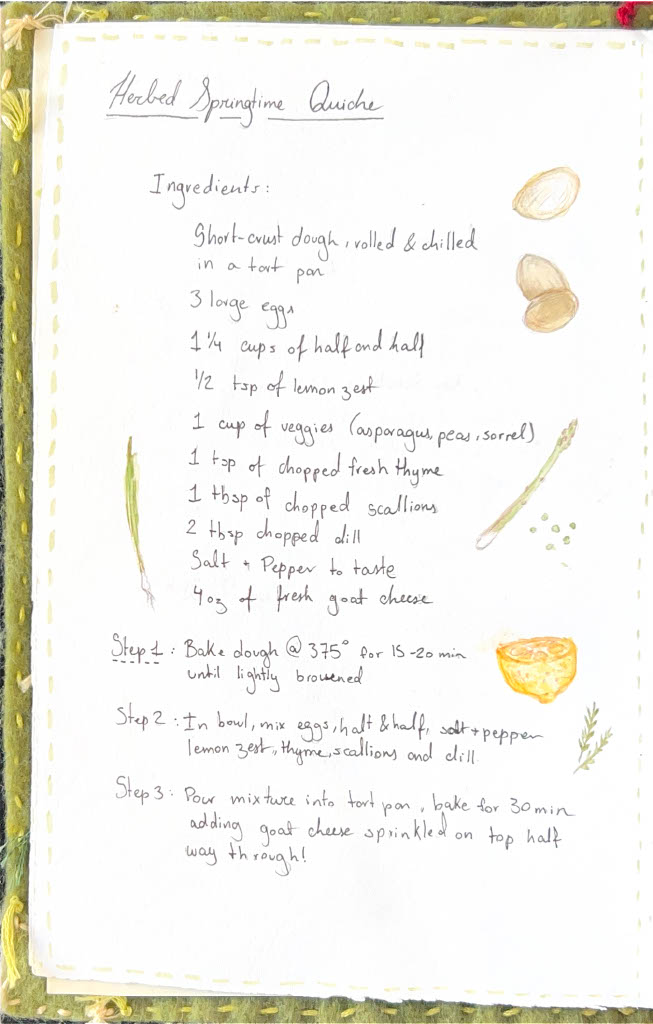 Herbed Springtime Quiche
Ingredients:
Short-crust dough, rolled & chilled
in a tart pan
3 large eggs
1 1/4 cups of half and half
1/2 tsp of lemon zest
1 cup of veggies (asparagus, peas, sorrel)
1 tsp of chopped fresh thyme
1 tbsp of chopped scallions
2 tbsp chopped dill
Salt + Pepper to taste
4oz of fresh goat cheese
Step 1: Bake dough @ 375° for 15-20 min
until lightly browened
Step 2: In bowl, mix eggs, half & half, salt + pepper
lemon zest, thyme, scallions and dill
Step 3: Pour mixture into tart pan, bake for 30 min
adding goat cheese sprinkled on top half
way through!